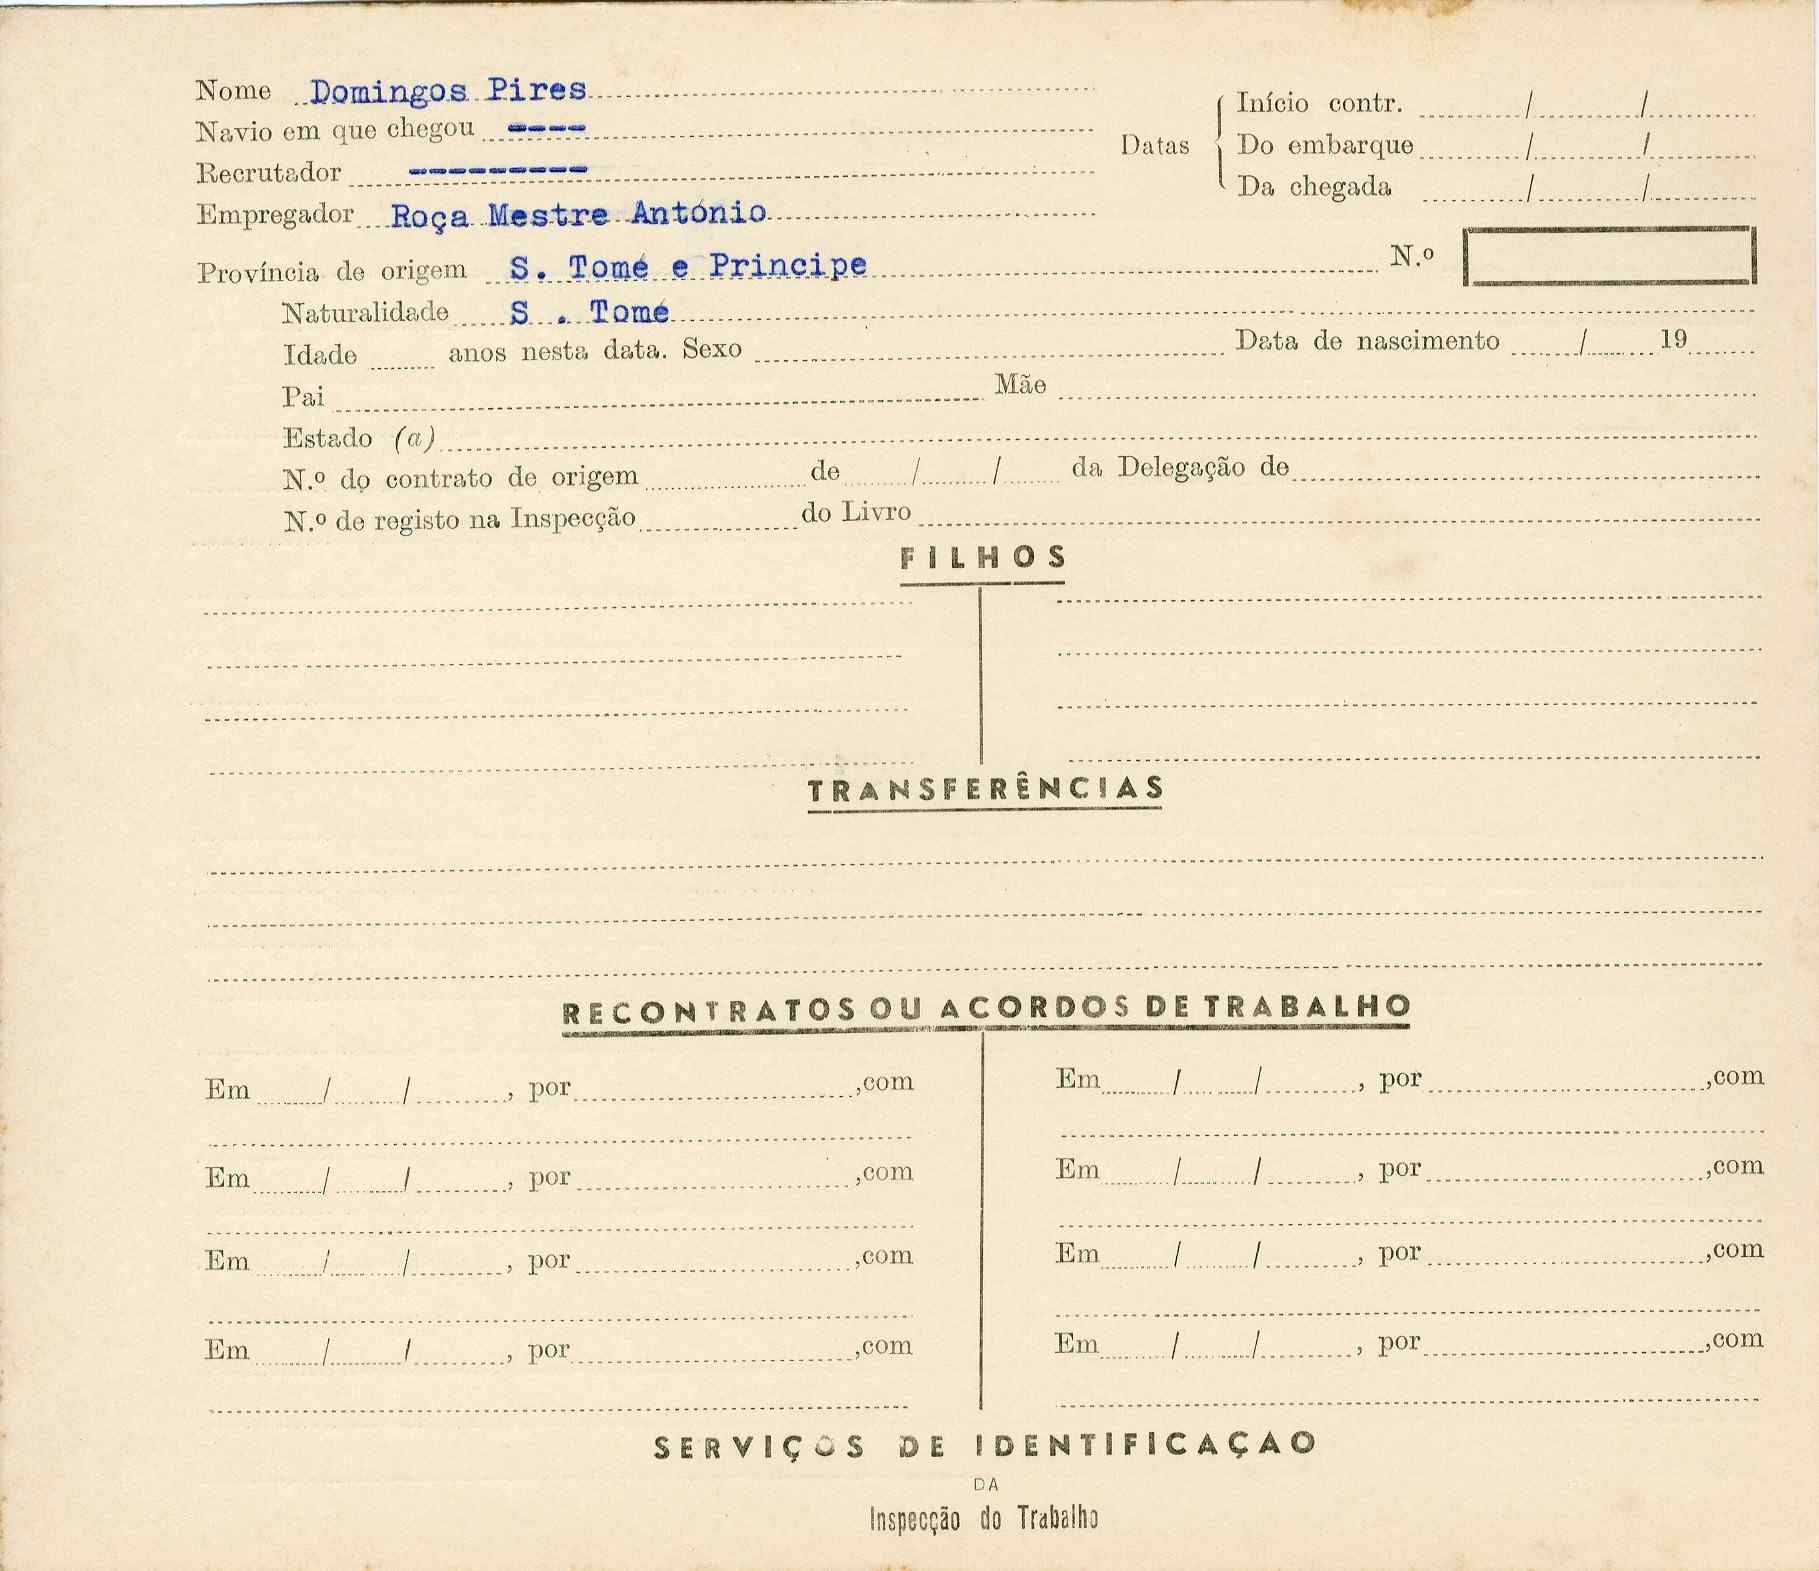 Nome Domingos Pires
Navio em que chegou ----
Recrutador ---------
Empregador Roça Mestre António
Datas
Início contr. / /
Do embarque / /
Da chegada / /
Província de origem S. Tomé e Principe N.º
Naturalidade S . Tomé
Idade anos nesta data. Sexo Data de nascimento / 19
Pai Mãe
Estado (a)
N.º do contrato de origem de / / da Delegação de
N.º de registo na Inspecção do Livro
FILHOS
TRANSFERÊNCIAS
RECONTRATOS OU ACORDOS DE TRABALHO
Em / / , por ,com
Em / / , por ,com
Em / / , por ,com
Em / / , por ,com
Em / / , por ,com
Em / / , por ,com
Em / / , por ,com
Em / / , por ,com
SERVIÇOS DE IDENTIFICAÇAO
DA
Inspecção do Trabalho